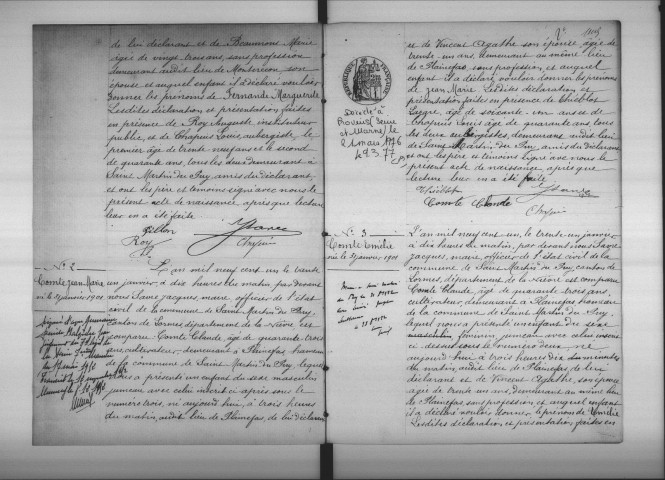 de lui déclarant et de Beaumons Marie
âgée de vingt trois ans, sans profession
demeurant audit lieu de Montericon son
épouse et auquel enfant il a déclaré vouloir
donner les prénoms de Fernande Marguerite
Lesdites déclaration et présentation faites
en présence de Roy Auguste instituteur
public, et de Chapuis Louis, aubergiste, le
premier âgé de trente neuf ans et le second
de quarante ans, tous les deux demeurant à
Saint Martin du Puy, amis des déclarants,
et ont les père et témoins signé avec nous le
présent acte de naissance, après que lecture
leur en a été faite.
Roy
Chapuis
N° 2
Comte Jean Marie
né le 31 janvier 1901
L'an mil neuf cent un le trente
un janvier, à dix heures du matin par devant
nous Savre Jacques, maire, officier de l'état
civil de la commune de Saint Martin du Puy,
canton de Lormes, département de la Nièvre est
comparu Comte Claude, âgé de quarante trois
ans, cultivateur, demeurant à Plainefas hameau
de la commune de Saint Martin du Puy, lequel
nous a présenté un enfant du sexe masculin
jumeau avec celui inscrit ci après sous le
numéro trois, né aujourd'hui, à trois heures
du matin, audit lieu de Plainefas, de lui déclarant
et de Vincent Agathe son épouse, âgée de
trente un ans, demeurant au même lieu
de Plainefas, sans profession, et auquel
enfant il a déclaré vouloir donner les prénoms
de Jean Marie. Lesdites déclaration et
présentation faites en présence de
âgé de soixante un ans et de
Chapuis Louis âgé de quarante ans, tous
les deux aubergistes, demeurant audit lieu
de Saint Martin du Puy, amis du déclarant
et ont les père et témoins signé avec nous le
présent acte de naissance, après que
lecture leur en a été faite
Comte Claude
Chapuis
RÉPUBLIQUE FRANÇAISE
Décédé à
Provins (Seine
et Marne) le
21 mars 1976
N° 3
Comte Emilie
né le 31 janvier 1901
L'an mil neuf cent un, le trente un janvier
à dix heures du matin, par devant nous Savre
Jacques, maire, officier de l'état civil de la
commune de Saint Martin du Puy, canton de
Lormes, département de la Nièvre est comparu
Comte Claude, âgé de quarante trois ans,
cultivateur, demeurant à Plainefas hameau
de la commune de Saint Martin du Puy,
lequel nous a présenté un enfant du sexe
masculin féminin jumeau avec celui inscrit
ci dessus sous le numéro deux, né
aujourd'hui à trois heures dix minutes
du matin, audit lieu de Plainefas de lui
déclarant et de Vincent Agathe, son épouse
âgée de trente un ans, demeurant au même lieu
de Plainefas, sans profession et auquel enfant
il a déclaré vouloir donner le prénom de Emilie
Lesdites déclaration et présentation faites en